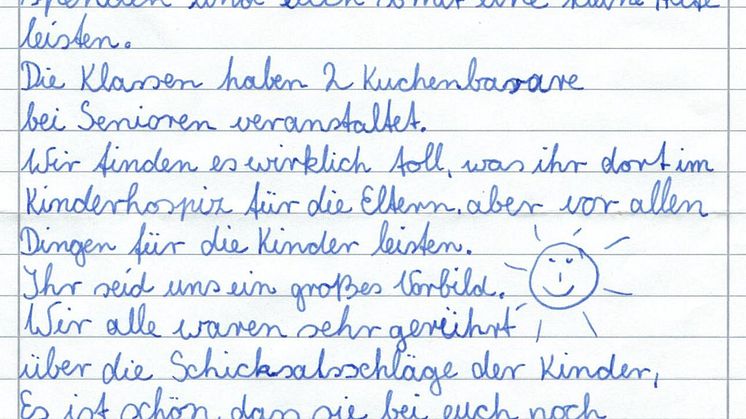 spenden und euch somit eine kleine Hilfe
leisten.
Die Klassen haben 2 Kuchenbasare
bei Senioren veranstaltet.
Wir finden es wirklich toll, was ihr dort im
Kinderhospiz für die Eltern, aber vor allen
Dingen für die Kinder leisten.
Ihr seid uns ein großes Vorbild.
Wir alle waren sehr gerührt
über die Schicksalsschläge der Kinder,
Es ist schön, dass sie bei euch noch